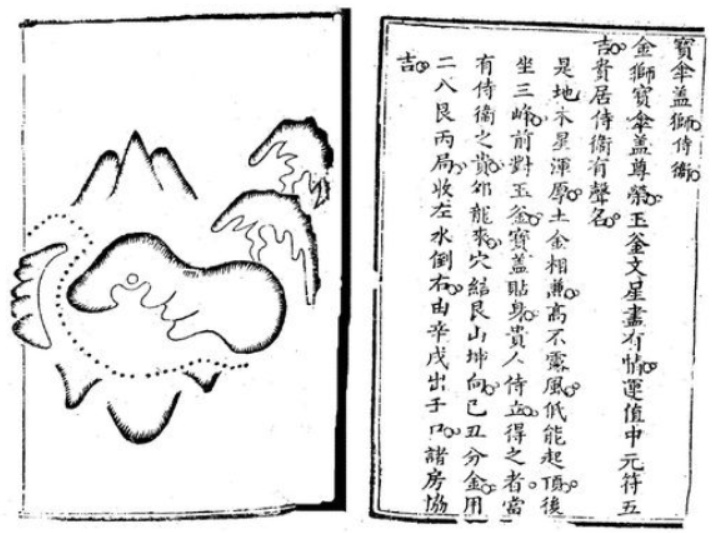 寶傘盖獅侍衛
金獅寶傘盖尊榮玉釜文星盡有情運值中元符五
吉貴居侍衛有聲名
是地木星渾厚土金相兼高不露風低能起頂後
坐三峰前對玉釜寶盖貼身貴人侍立得之者當
有侍衛之貴卯龍來穴結艮山坤向已丑分金用
二八艮丙局收左水倒右由辛戌出子口諸房協
吉